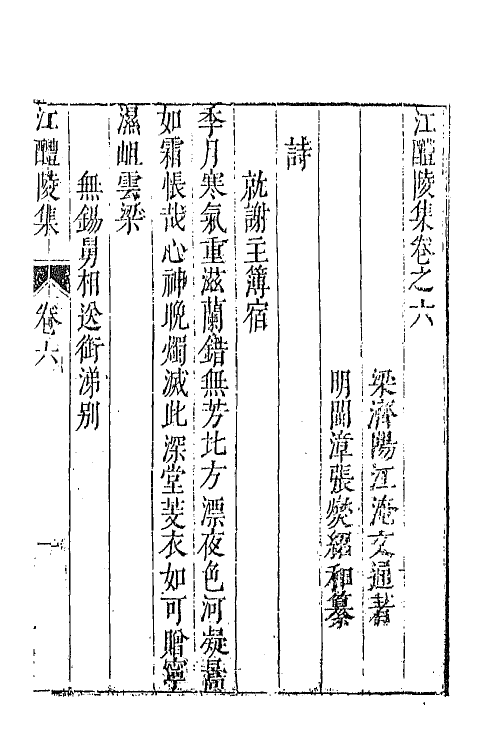 江醴陵集卷之六
梁濟陽江淹文通著
明閩漳張燮紹和纂
詩
就謝主簿宿
季月寒氣重滋蘭錯無芳北方漂夜色河凝畫
如霜悵哉心神晚燭滅此深堂芰衣如可贈寧
濕岨雲梁
無錫舅相送銜涕別
江醴陵集
卷六
一